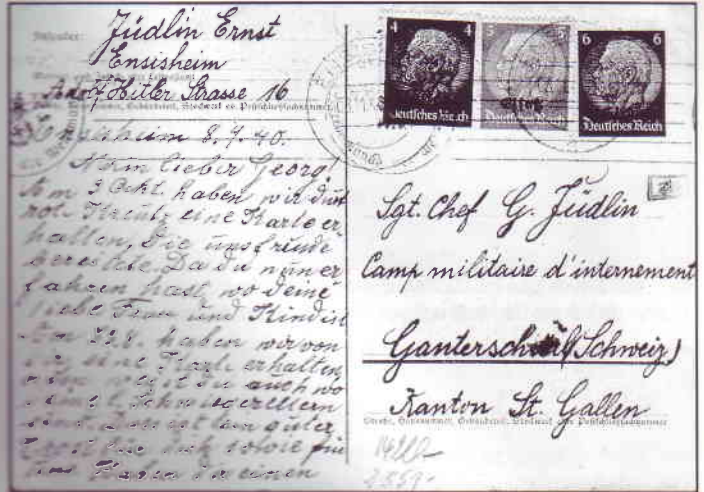 Absender:
Jüdlin Ernst
Ensisheim
Adolf Hitler Strasse 16
Ensisheim 8. 9. 40.
Mein lieber Georg!
Am 3 Okt. haben wir durch
rote Kreutz eine Karte er
halten, Die uns freude
bereitete. Da du nun er
fahren hast, wo deine
liebe Frau und Kind ist
Am 22.8. haben wir von
eine Karte erhalten
weist du auch wo
Schwiegereltern
sind. Das ist ein guter
Trost für dich sowie für
uns einen
4 4
Deutsches Reich
5 5
Elsaß
Deutsches Reich
6 6
Deutsches Reich
Sgt. Chef G. Jüdlin
Camp militaire d'internement
Ganterschwil (Schweiz)
Kanton St. Gallen
Straße, Hausnummer, Gebäudeteil, Stockwerk oder Postschließfachnummer